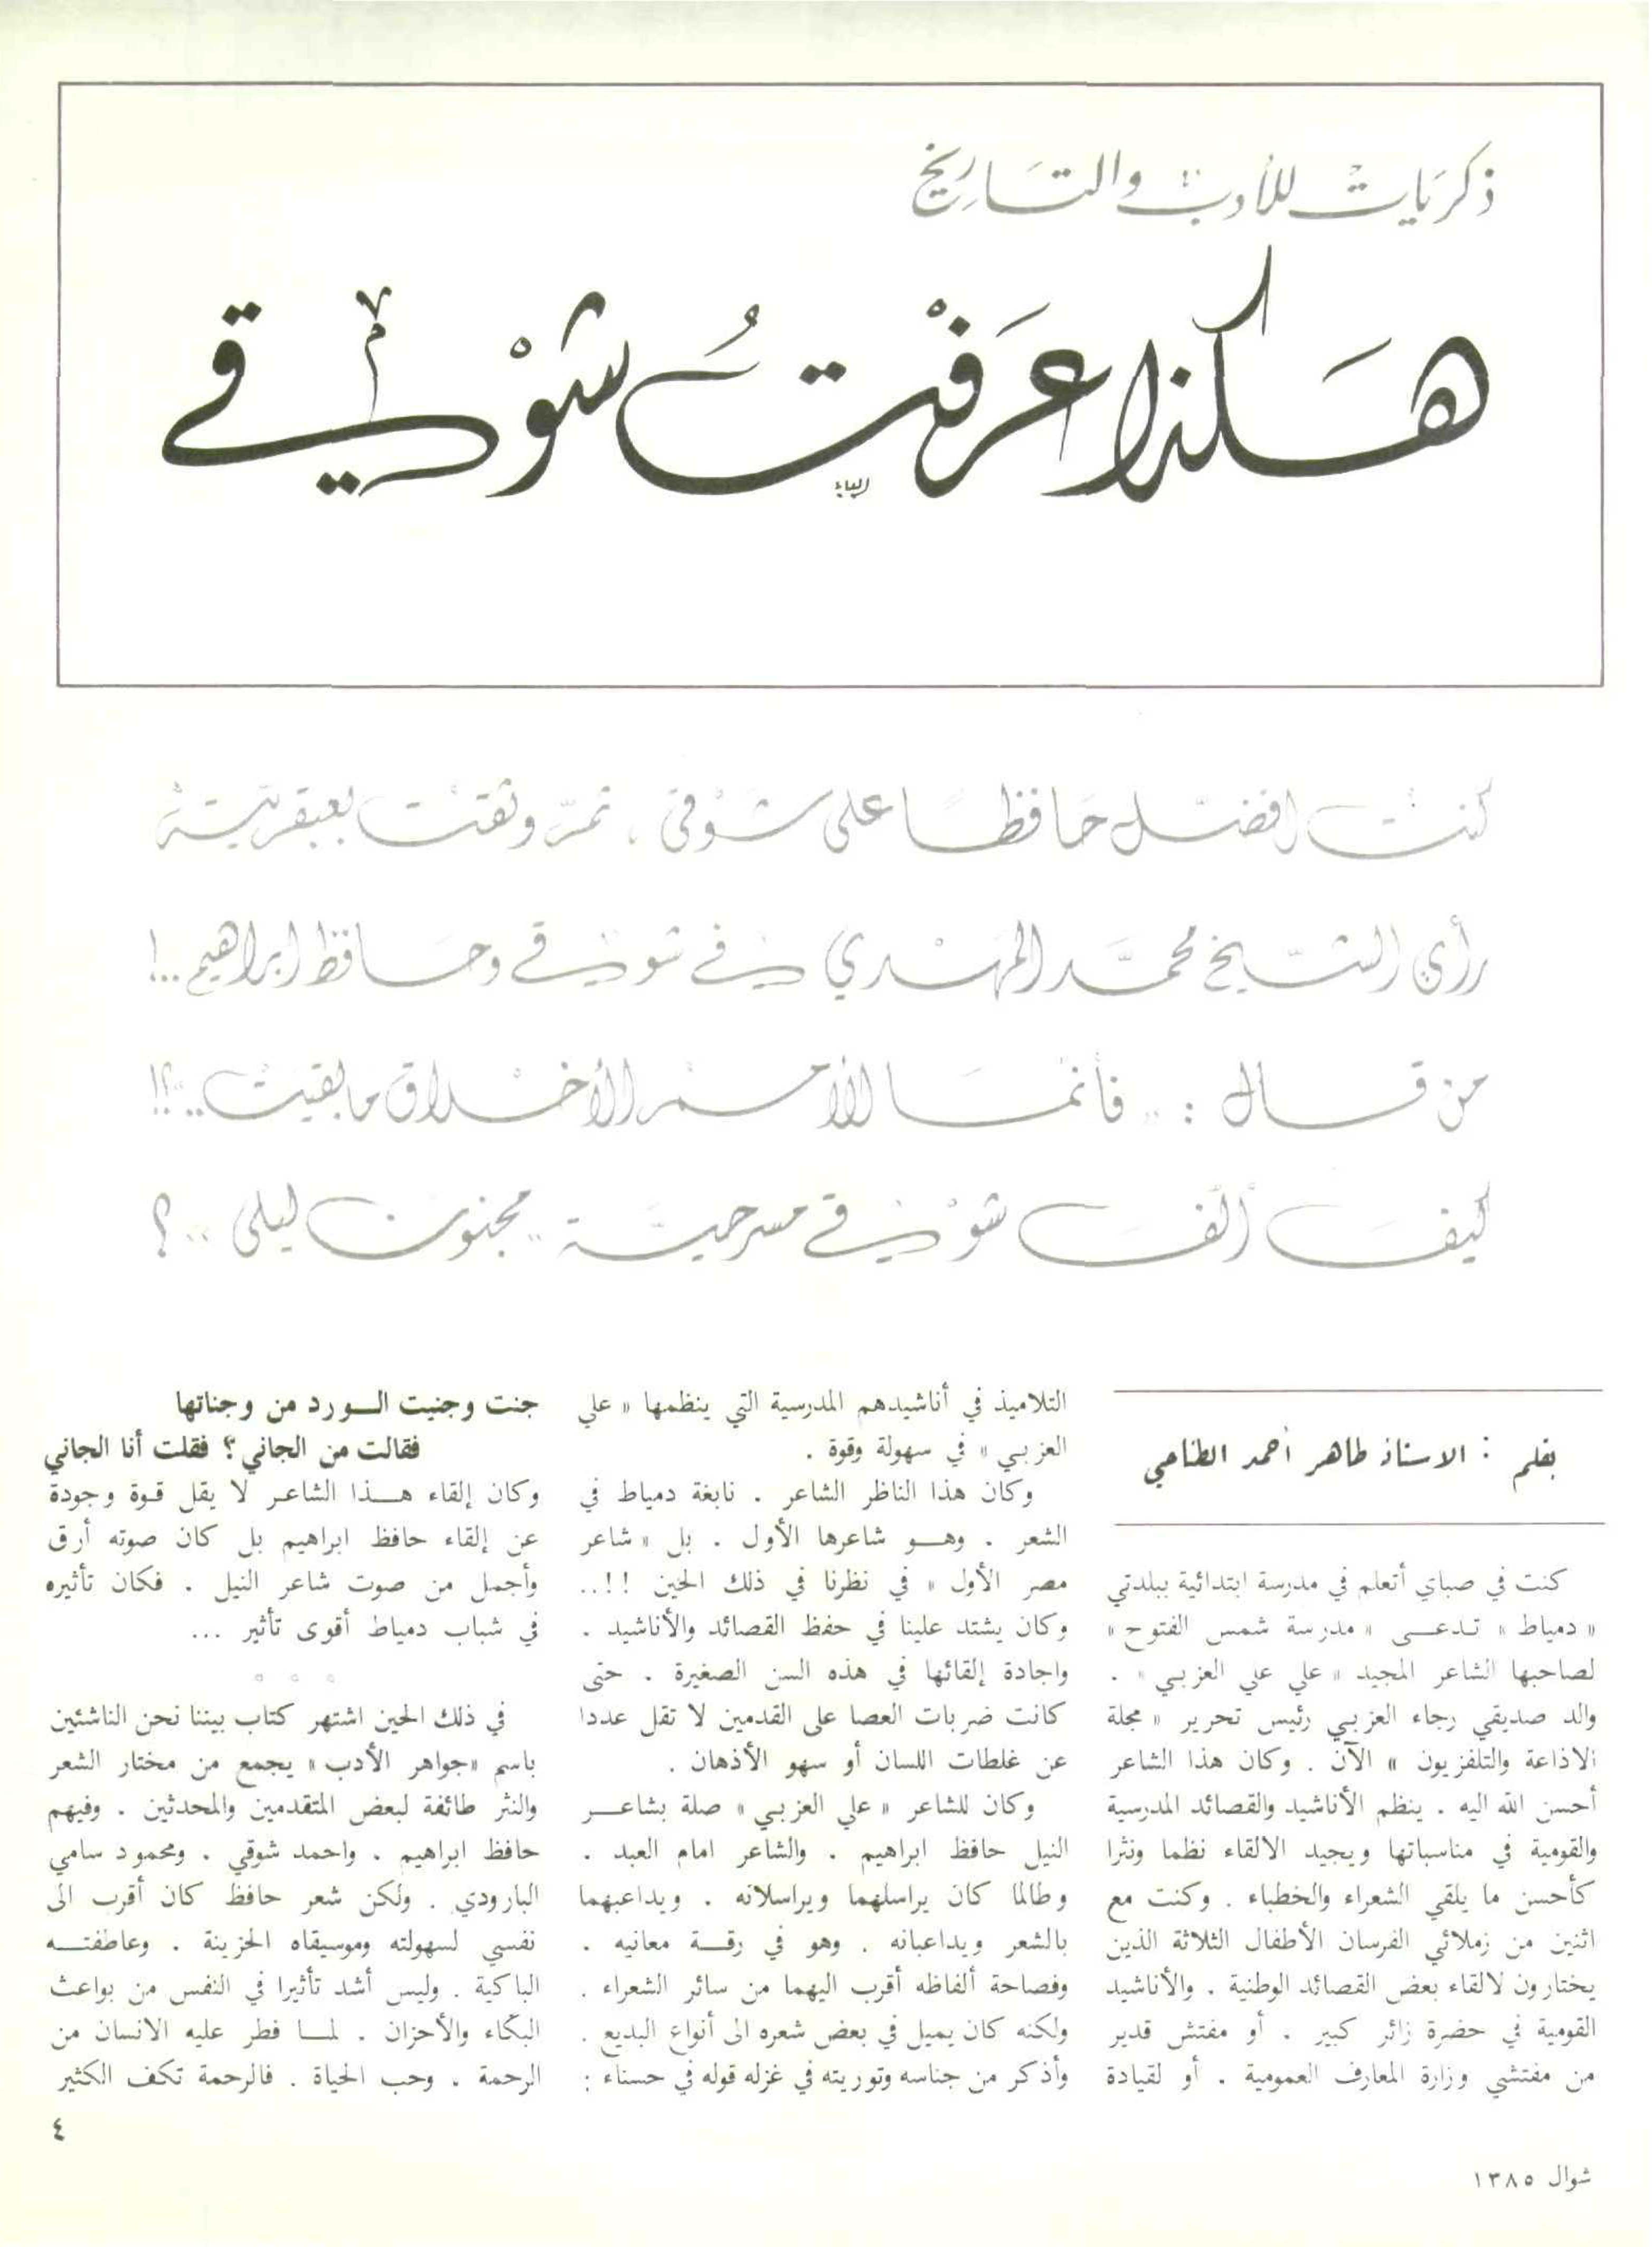 ذكريات للأدب والتاريخ
هَكذا عَرَفْتُ شَوْقي
كنت افضّل حَافظا على شَوْقي ، ثمّ وثقت بعبقريّته
رأي الشّيخ محمَّد المهْدي في شوقي وحَافظ ابراهيم ..!
من قال : .. فأنمَا الأمْم الأخْلاق ما بقيتْ ..؟!
كيفَ ألّفَ شوْقي مسرحيّة .. مجنون ليلى ..؟
بقلم : الاستاذ طاهر احمد الطناحي
كنت في صباي أتعلم في مدرسة ابتدائية ببلدتي
« دمياط » تدعى « مدرسة شمس الفتوح »
لصاحبها الشاعر المجيد « علي علي العزبي » .
والد صديقي رجاء العزبي رئيس تحرير « مجلة
الاذاعة والتلفزيون » الآن . وكان هذا الشاعر
أحسن الله اليه . ينظم الأناشيد والقصائد المدرسية
والقومية في مناسباتها ويجيد الالقاء نظما ونثرا
كأحسن ما يلقي الشعراء والخطباء . وكنت مع
اثنين من زملائي الفرسان الأطفال الثلاثة الذين
يختارون لالقاء بعض القصائد الوطنية . والأناشيد
القومية في حضرة زائر كبير . أو مفتش قدير
من مفتشي وزارة المعارف العمومية . أو لقيادة
التلاميذ في أناشيدهم المدرسية التي ينظمها « علي
العزبي » في سهولة وقوة .
وكان هذا الناظر الشاعر . نابغة دمياط في
الشعر . وهو شاعرها الأول . بل « شاعر
مصر الأول » في نظرنا في ذلك الحين !!..
وكان يشتد علينا في حفظ القصائد والأناشيد .
واجادة إلقائها في هذه السن الصغيرة . حتى
كانت ضربات العصا على القدمين لا تقل عددا
عن غلطات اللسان أو سهو الأذهان .
وكان للشاعر « علي العزبي » صلة بشاعر
النيل حافظ ابراهيم . والشاعر امام العبد .
وطالما كان يراسلهما ويراسلانه . ويداعبهما
بالشعر ويداعبانه . وهو في رقة معانيه .
وفصاحة ألفاظه أقرب اليهما من سائر الشعراء .
ولكنه كان يميل في بعض شعره الى أنواع البديع .
وأذكر من جناسه وتوريته في غزله قوله في حسناء :
جنت وجنيت الورد من وجناتها
فقالت من الجاني؟ فقلت أنا الجاني
وكان إلقاء هذا الشاعر لا يقل قوة وجودة
عن إلقاء حافظ ابراهيم بل كان صوته أرق
وأجمل من صوت شاعر النيل . فكان تأثيره
في شباب دمياط أقوى تأثير ...
في ذلك الحين اشتهر كتاب بيننا نحن الناشئين
باسم «جواهر الأدب» يجمع من مختار الشعر
والنثر طائفة لبعض المتقدمين والمحدثين . وفيهم
حافظ ابراهيم . واحمد شوقي . ومحمود سامي
البارودي . ولكن شعر حافظ كان أقرب الى
نفسي لسهولته وموسيقاه الحزينة . وعاطفته
الباكية . وليس أشد تأثيرا في النفس من بواعث
البكاء والأحزان . لما فطر عليه الانسان من
الرحمة . وحب الحياة . فالرحمة تكف الكثير
٤
شوال ١٣٨٥